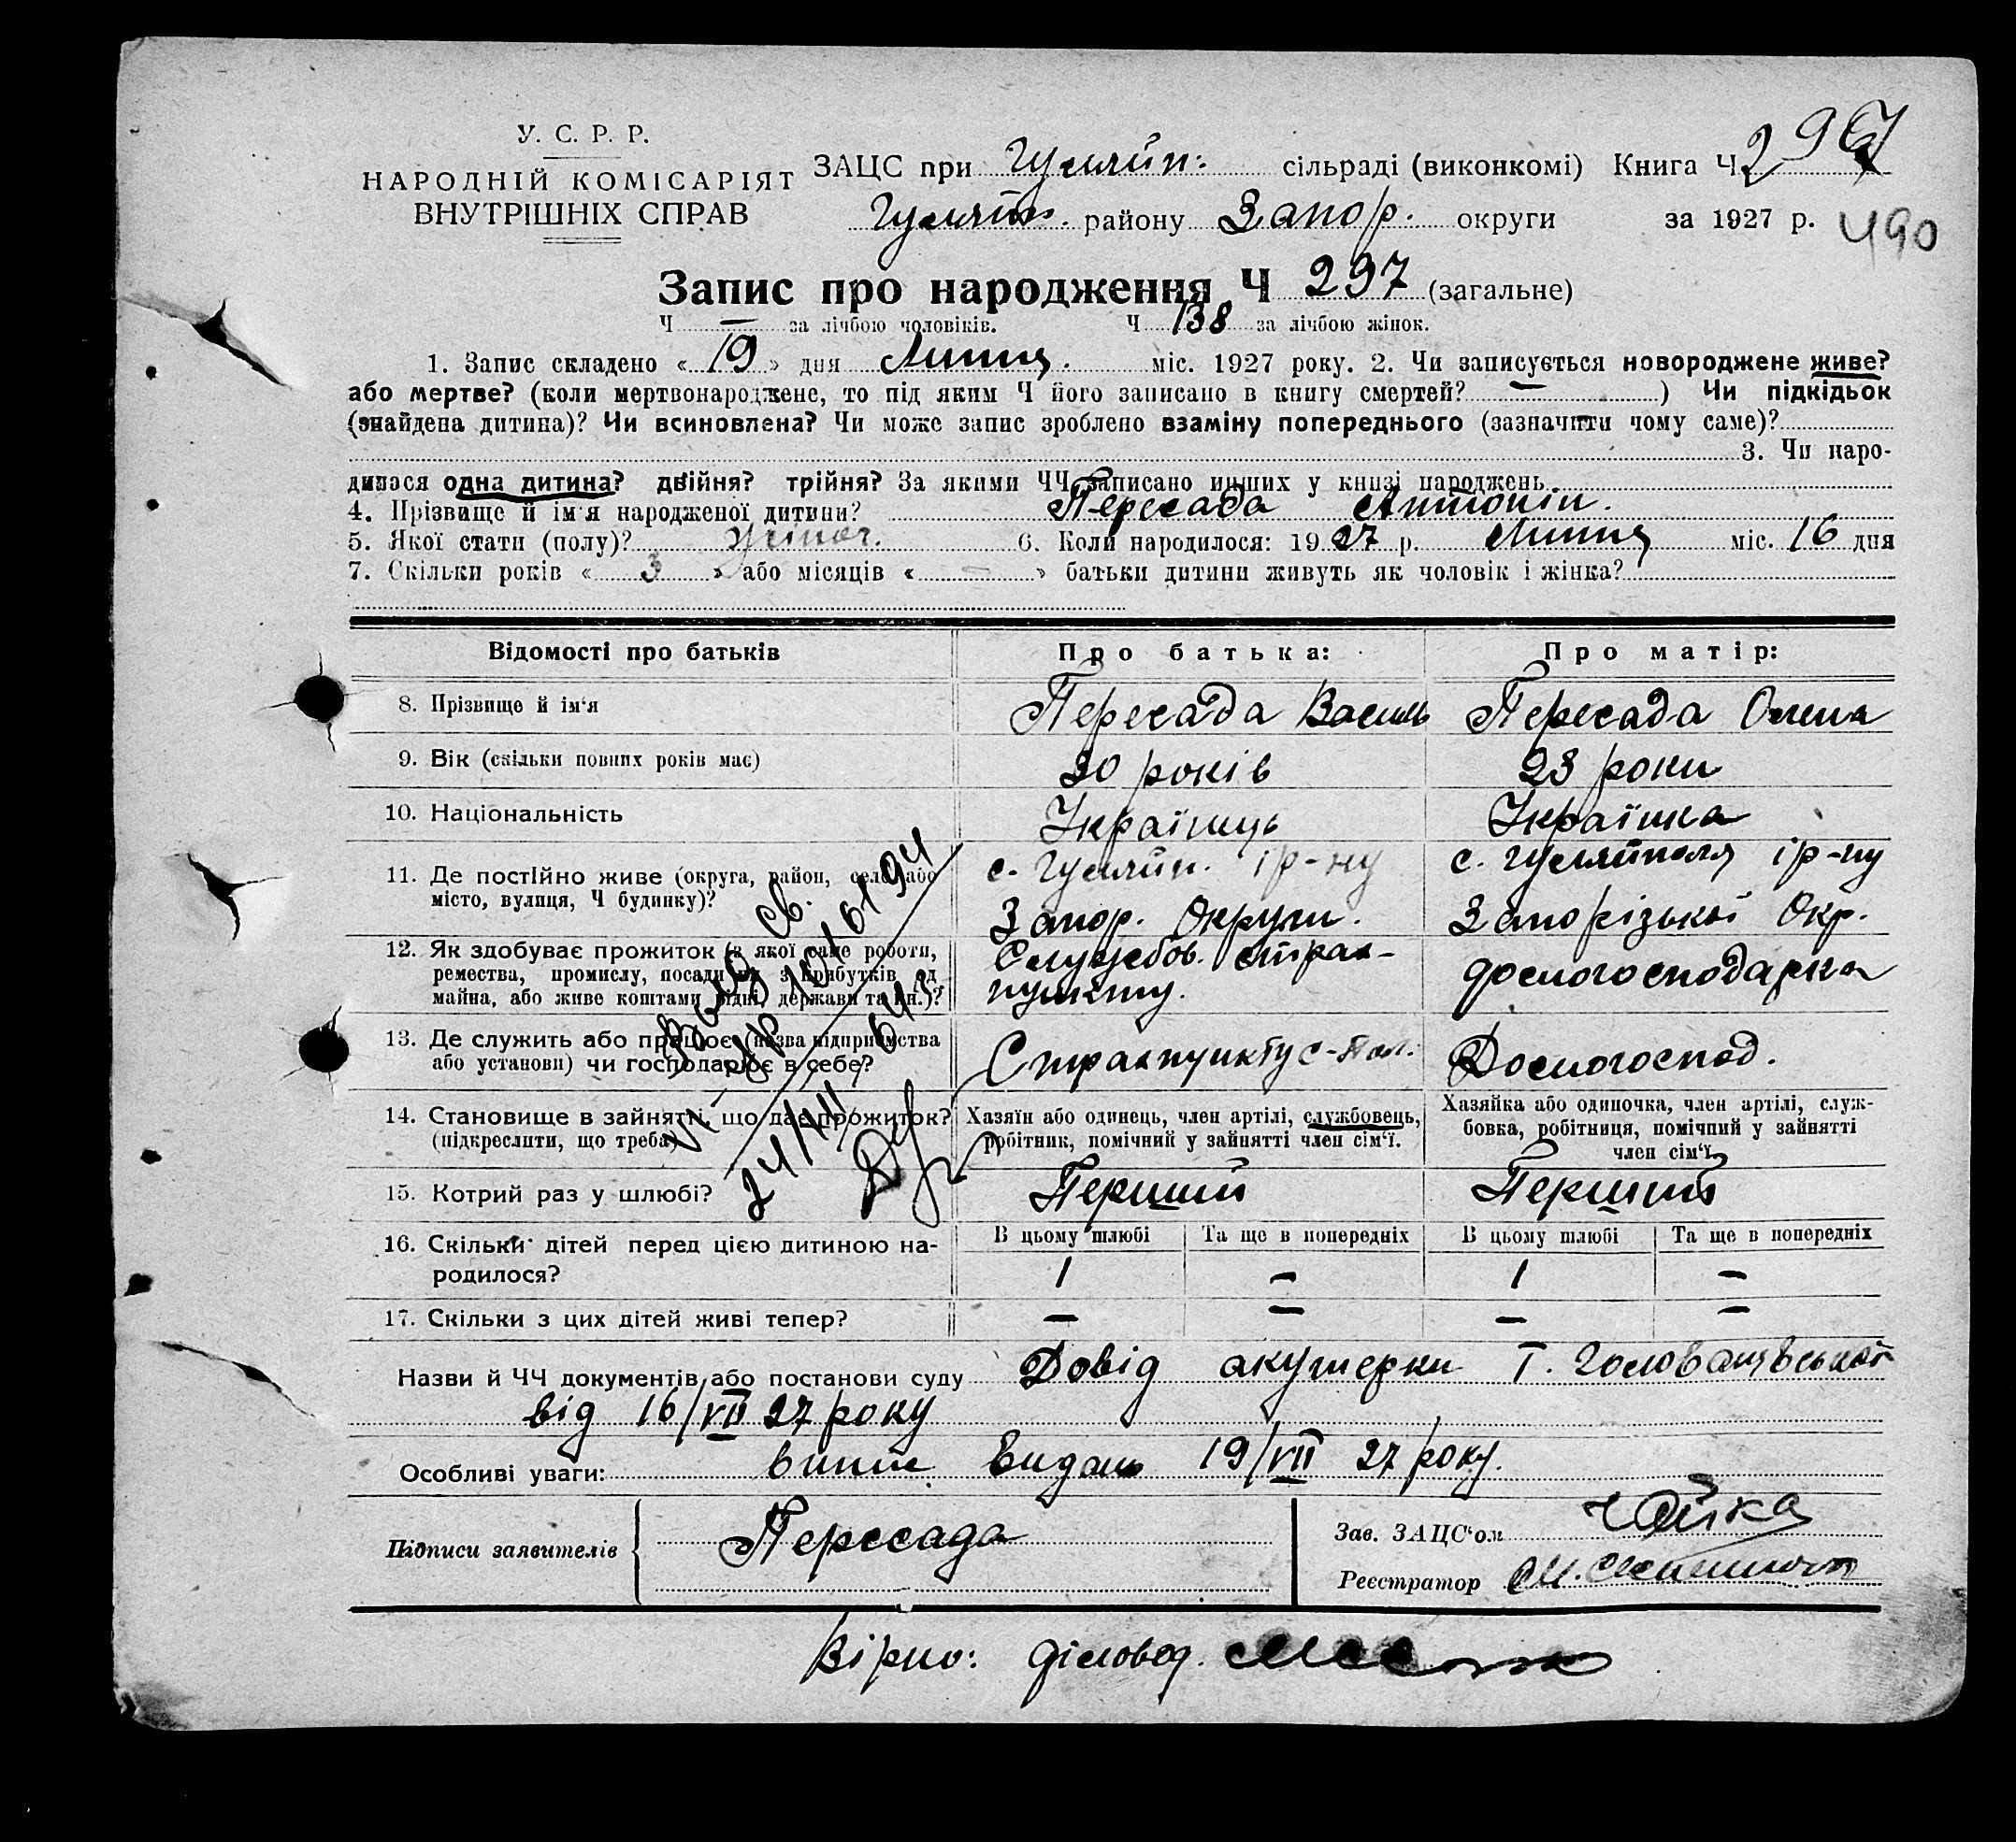 У. С. Р. Р.
НАРОДНІЙ КОМІСАРІЯТ
ВНУТРІШНІХ СПРАВ
ЗАЦС при Гуляйп. сільраді (виконкомі) Книга Ч 297
Гуляйп. району Запор. округи за 1927 р. 490
Запис про народження Ч 297 (загальне)
Ч — за лічбою чоловіків. Ч 138 за лічбою жінок.
1. Запис складено « 19 » дня Липня міс. 1927 року. 2. Чи записується новороджене живе?
або мертве? (коли мертвонароджене, то під яким Ч його записано в книгу смертей? — ) Чи підкідьок
(знайдена дитина)? Чи всиновлена? Чи може запис зроблено взаміну попереднього (зазначити чому саме)?
3. Чи наро-
дилася одна дитина? двійня? трійня? За якими ЧЧ записано инших у книзі народжень
4. Прізвище й ім'я народженої дитини? Пересада Антонін.
5. Якої стати (полу)? жіноч. 6. Коли народилося: 1927 р. Липня міс. 16 дня
7. Скільки років « 3 » або місяців « — » батьки дитини живуть як чоловік і жінка?
Відомості про батьків Про батька: Про матір:
8. Прізвище й ім'я Пересада Василь Пересада Олена
9. Вік (скільки повних років має) 30 років 23 роки
10. Національність Українець Українка
11. Де постійно живе (округа, район, село або
місто, вулиця, Ч будинку)?
с. Гуляйп. і р-ну
Запор. Округи.
с. Гуляйполя і р-ну
Запорізької Окр.
12. Як здобуває прожиток (з якої саме роботи,
ремества, промислу, посади чи з прибутків од
майна, або живе коштами рідні, держави та ин.)?
Службов. страх-
пункту.
домогосподарка
13. Де служить або працює (назва підприємства
або установи) чи господарює в себе?
Страхпункту с-пол.
Домогоспод.
14. Становище в зайнятті, що дає прожиток?
(підкреслити, що треба)
Хазяїн або одинець, член артілі, службовець,
робітник, помічний у зайнятті член сім'ї.
Хазяйка або одиночка, член артілі, служ-
бовка, робітниця, помічний у зайнятті
член сім'ї
24/VII
15. Котрий раз у шлюбі? Перший Перший
16. Скільки дітей перед цією дитиною на-
родилося?
В цьому шлюбі Та ще в попередніх В цьому шлюбі Та ще в попередніх
1 — 1 —
17. Скільки з цих дітей живі тепер? — — — —
Назви й ЧЧ документів або постанови суду Довід акушерки Т. Голованявської
від 16/VII 27 року
Особливі уваги: випис видано 19/VII 27 року.
Підписи заявителів Пересада
Зав. ЗАЦС'ом Чайка
Реєстратор
Вірно: діловод.